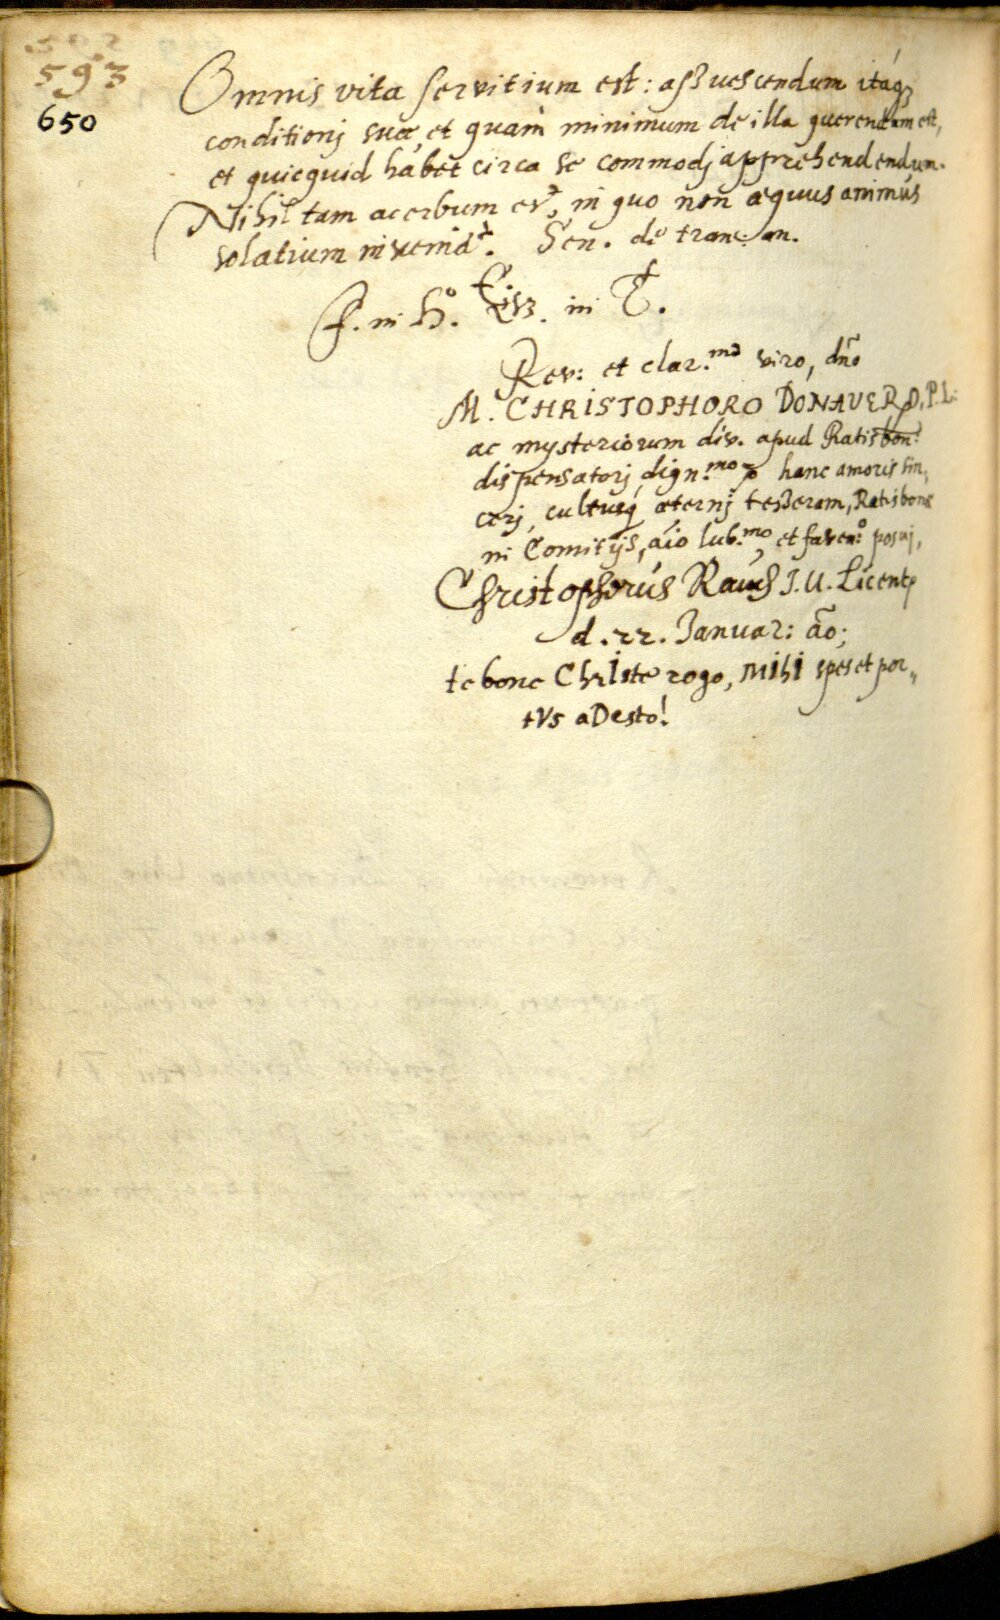 593
650
Omnis vita servitium est: assuescendum itaq₃
conditionj suæ, et quàm minimum de illa querendum est,
et quicquid habet circa se commodj apprehendendum.
Nihil tam acerbum e&, in quo non æquus animus
solatium inveniat. Sen. de tranc. an.
F. in H°. in
Rev: et clar.mo viro, dño
M. CHRISTOPHORO DONAVERO, P.L.
ac mysteriorum div. apud Ratisbon:
dispensatorj dign.mo hanc amoris sin,
cerj, cultusq́ æternj tesseram, Ratisbonæ
in Comitijs, aío lub.mo, et faven:° posuj,
Christophorus Rauch J.U. Licent
d. 22. Januar: ão;
te bone ChrIste rogo, MIhI spes et por„
tVs aDesto!